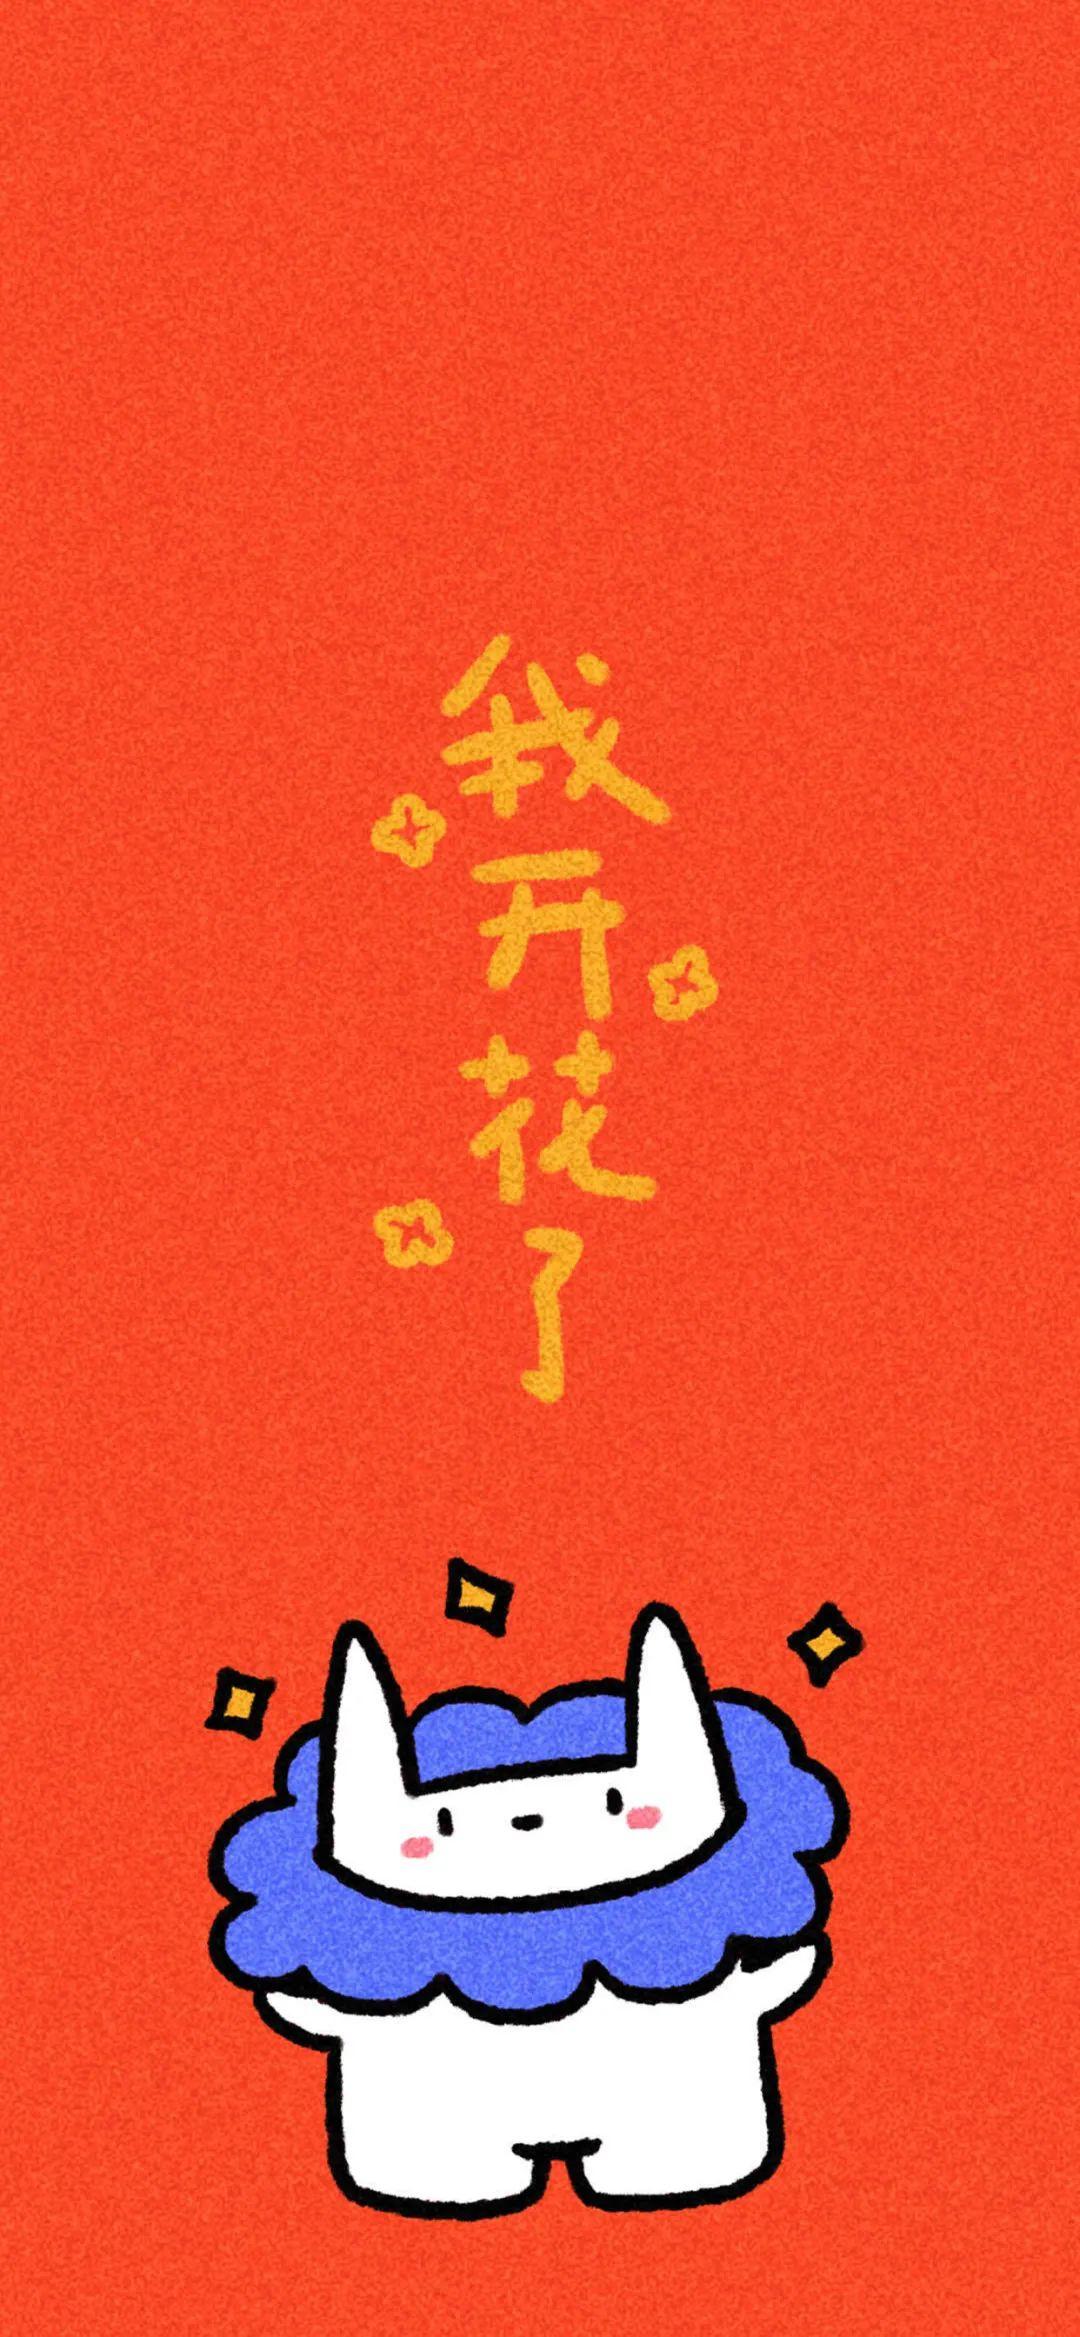 我开花了